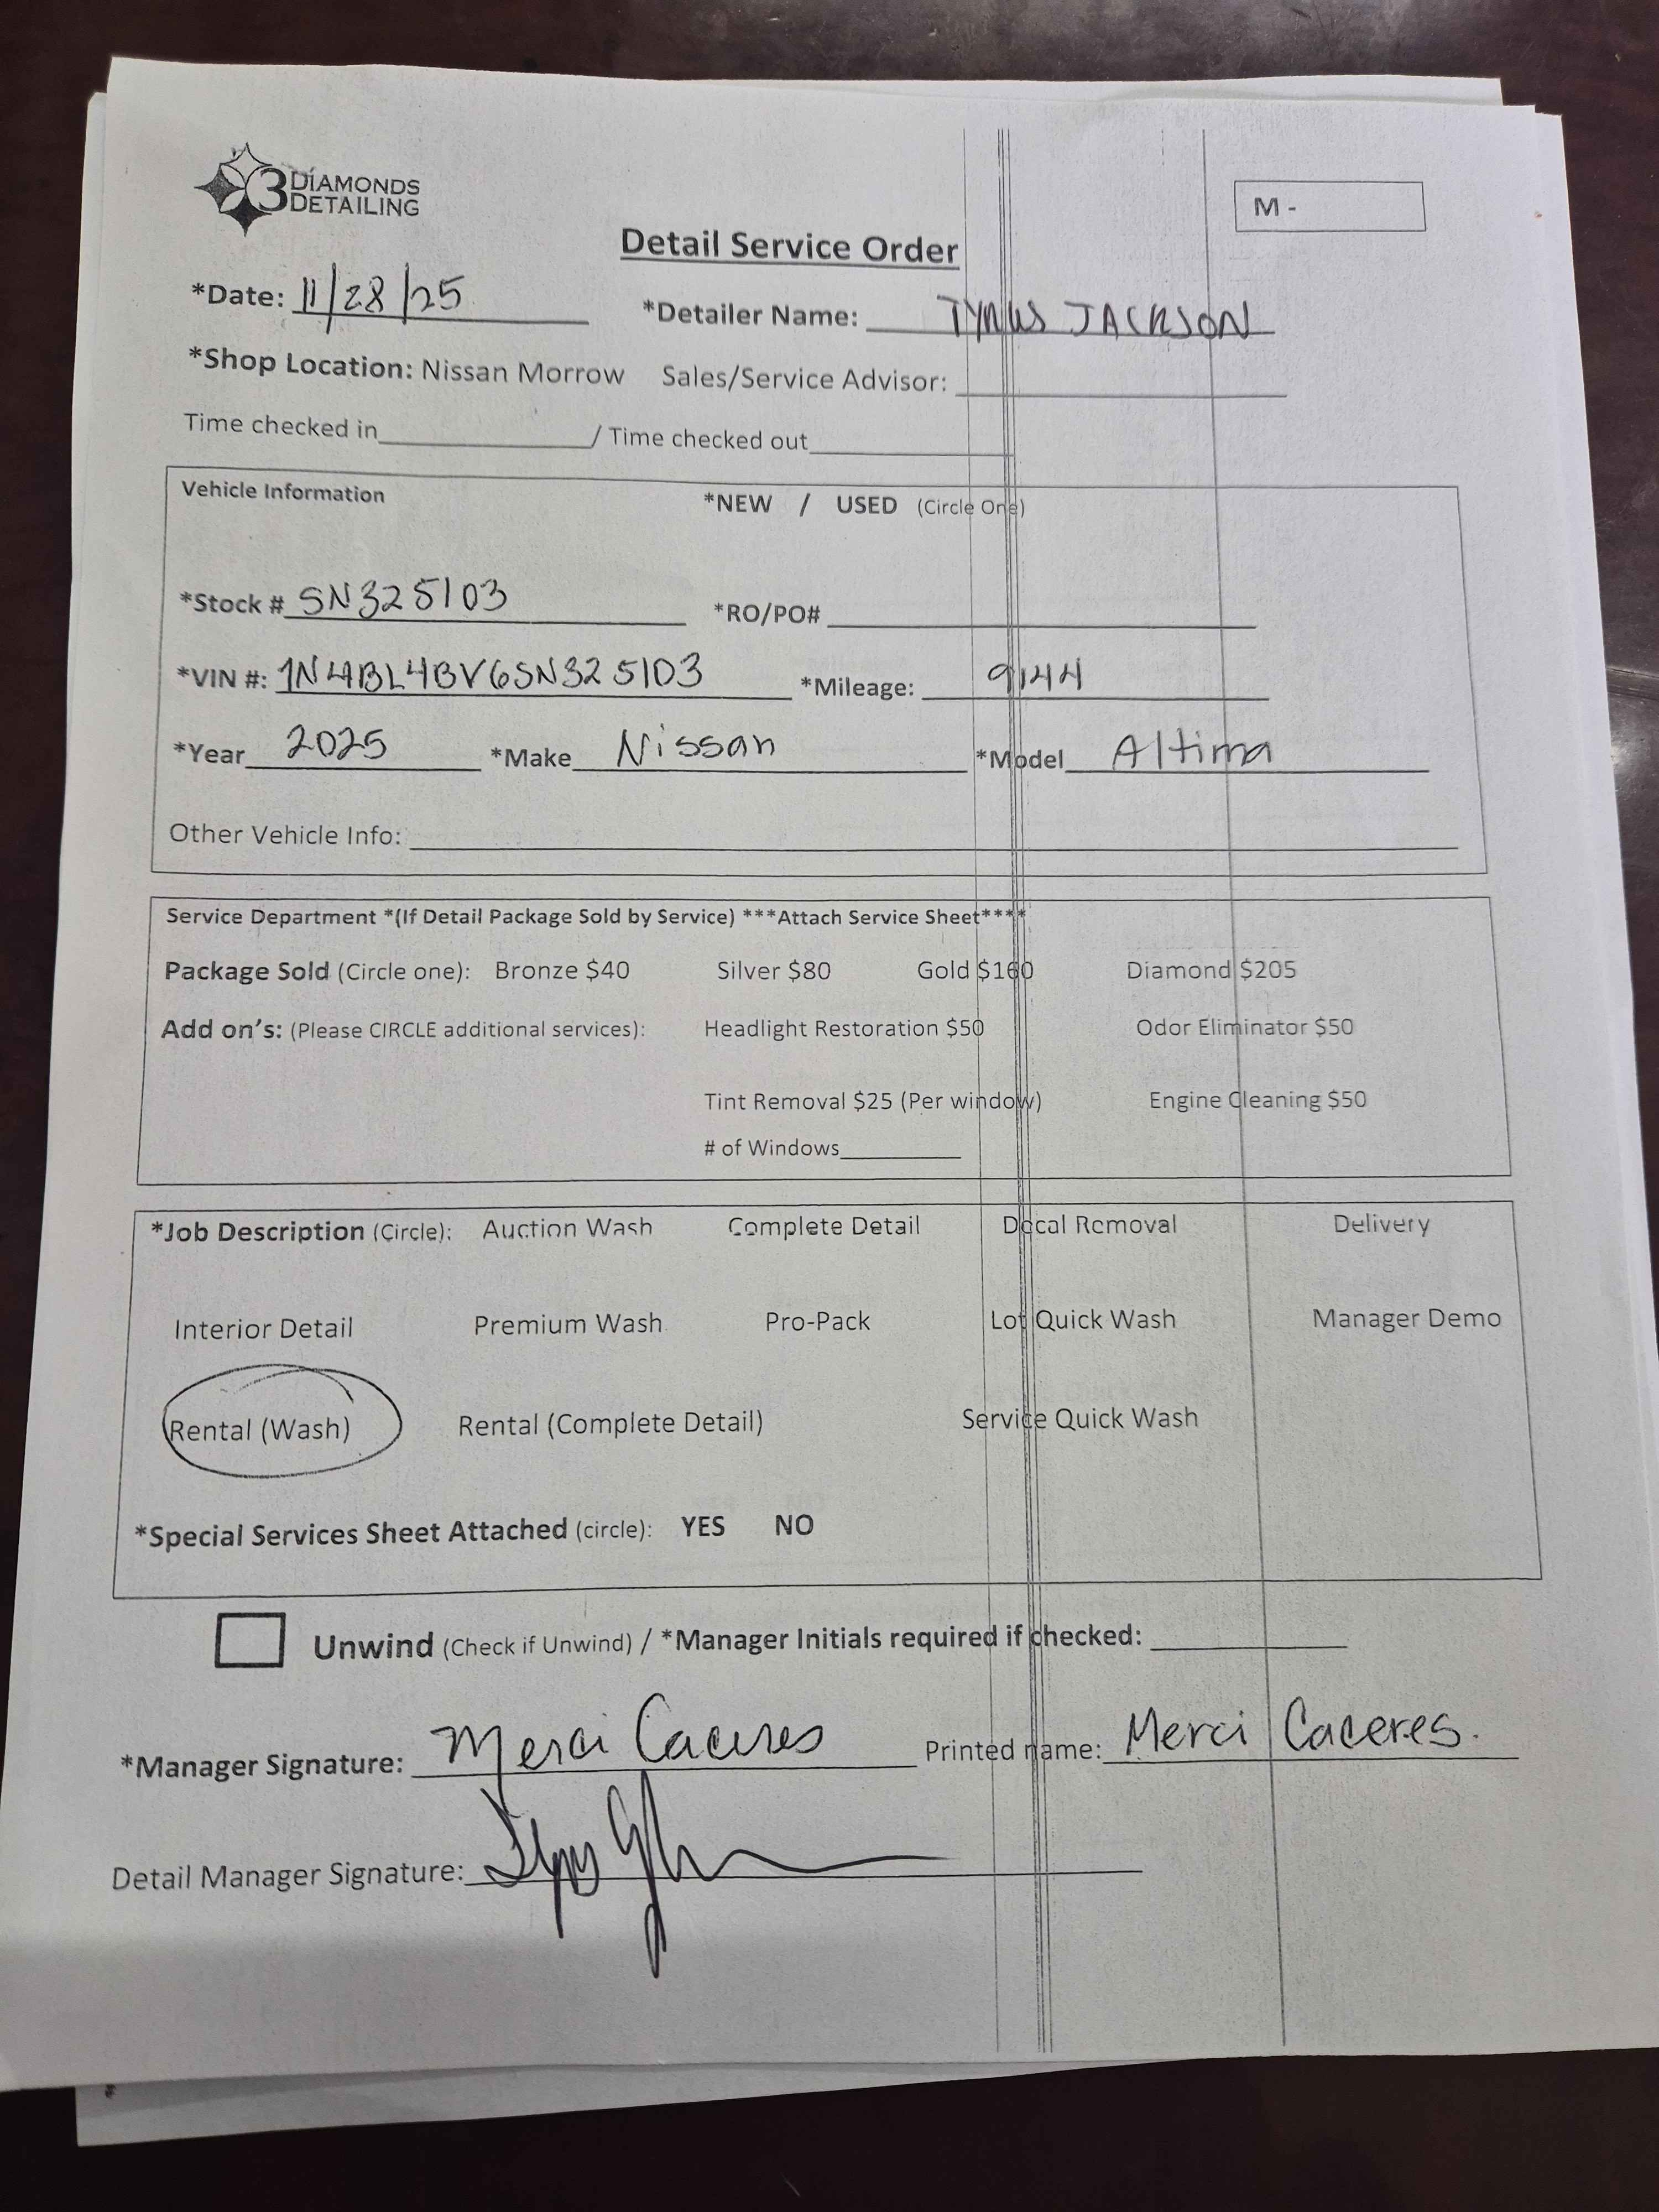 3 DIAMONDS DETAILING
M -
Detail Service Order
*Date: 11/28/25 *Detailer Name: TYRUS JACKSON
*Shop Location: Nissan Morrow Sales/Service Advisor:
Time checked in / Time checked out
Vehicle Information *NEW / USED (Circle One)
*Stock # SN325103 *RO/PO#
*VIN #: 1N4BL4BV6SN325103 *Mileage: 9144
*Year 2025 *Make Nissan *Model Altima
Other Vehicle Info:
Service Department *(If Detail Package Sold by Service) ***Attach Service Sheet****
Package Sold (Circle one): Bronze $40 Silver $80 Gold $160 Diamond $205
Add on's: (Please CIRCLE additional services): Headlight Restoration $50 Odor Eliminator $50
Tint Removal $25 (Per window) Engine Cleaning $50
# of Windows
*Job Description (Circle): Auction Wash Complete Detail Decal Removal Delivery
Interior Detail Premium Wash Pro-Pack Lot Quick Wash Manager Demo
Rental (Wash) Rental (Complete Detail) Service Quick Wash
*Special Services Sheet Attached (circle): YES NO
Unwind (Check if Unwind) / *Manager Initials required if checked:
*Manager Signature: Merci Caceres Printed name: Merci Caceres.
Detail Manager Signature: